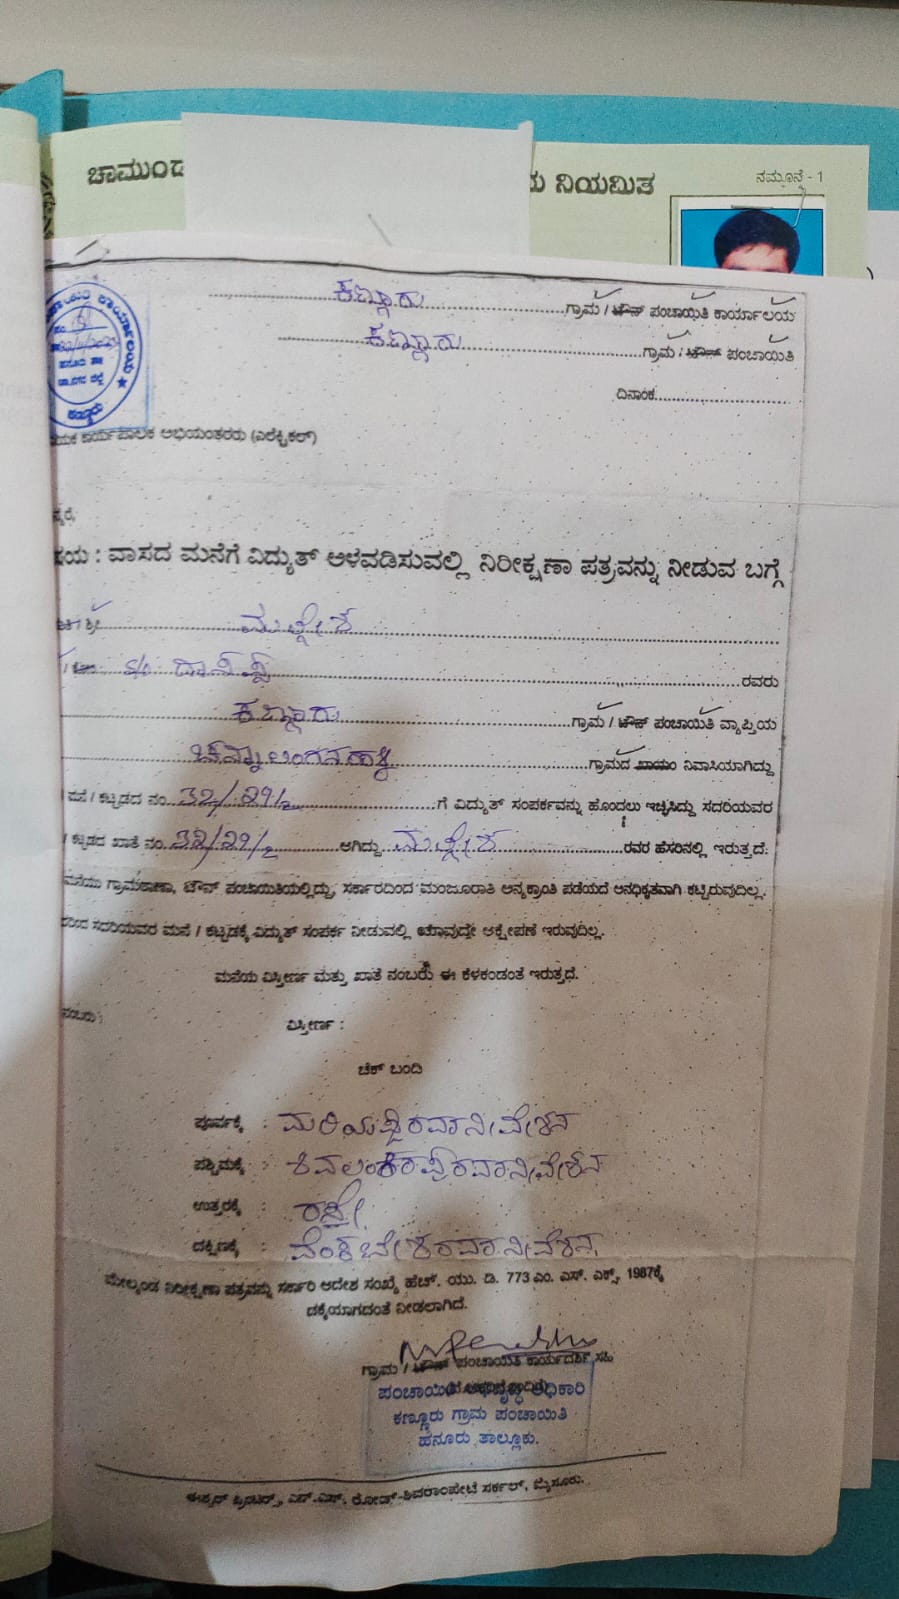 ಚಾಮುಂಡ
ನಿಯಮಿತ
ನಮೂನೆ - 1
ಕಣ್ಣೂರು ಗ್ರಾಮ / ಟೌನ್ ಪಂಚಾಯಿತಿ ಕಾರ್ಯಾಲಯ
ಕಣ್ಣೂರು ಗ್ರಾಮ / ಟೌನ್ ಪಂಚಾಯಿತಿ
ದಿನಾಂಕ
ಕಾರ್ಯಾಲಯ
ಕಣ್ಣೂರು
ಕಾರ್ಯಪಾಲಕ ಅಭಿಯಂತರರು (ಎಲೆಕ್ಟ್ರಿಕಲ್)
ನ್ಯರೆ,
ಷಯ : ವಾಸದ ಮನೆಗೆ ವಿದ್ಯುತ್ ಅಳವಡಿಸುವಲ್ಲಿ ನಿರೀಕ್ಷಣಾ ಪತ್ರವನ್ನು ನೀಡುವ ಬಗ್ಗೆ
ಶ್ರೀ
S/o ರವರು
ಕಣ್ಣೂರು ಗ್ರಾಮ / ಟೌನ್ ಪಂಚಾಯಿತಿ ವ್ಯಾಪ್ತಿಯ
ಗ್ರಾಮದ ಖಾಯಂ ನಿವಾಸಿಯಾಗಿದ್ದು
ಮನೆ / ಕಟ್ಟಡದ ನಂ. 32/29/2 ಗೆ ವಿದ್ಯುತ್ ಸಂಪರ್ಕವನ್ನು ಹೊಂದಲು ಇಚ್ಛಿಸಿದ್ದು ಸದರಿಯವರ
/ ಕಟ್ಟಡದ ಖಾತೆ ನಂ. 32/29/2 ಆಗಿದ್ದು ರವರ ಹೆಸರಿನಲ್ಲಿ ಇರುತ್ತದೆ.
ಮನೆಯು ಗ್ರಾಮಠಾಣಾ, ಟೌನ್ ಪಂಚಾಯಿತಿಯಲ್ಲಿದ್ದು, ಸರ್ಕಾರದಿಂದ ಮಂಜೂರಾತಿ ಅನ್ಯಕ್ರಾಂತಿ ಪಡೆಯದೆ ಅನಧಿಕೃತವಾಗಿ ಕಟ್ಟಿರುವುದಿಲ್ಲ.
ಸದರಿಯವರ ಮನೆ / ಕಟ್ಟಡಕ್ಕೆ ವಿದ್ಯುತ್ ಸಂಪರ್ಕ ನೀಡುವಲ್ಲಿ ಯಾವುದೇ ಆಕ್ಷೇಪಣೆ ಇರುವುದಿಲ್ಲ.
ಮನೆಯ ವಿಸ್ತೀರ್ಣ ಮತ್ತು ಖಾತೆ ನಂಬರು ಈ ಕೆಳಕಂಡಂತೆ ಇರುತ್ತದೆ.
ನಂಬರು :
ವಿಸ್ತೀರ್ಣ :
ಚೆಕ್ ಬಂದಿ
ಪೂರ್ವಕ್ಕೆ :
ಪಶ್ಚಿಮಕ್ಕೆ :
ಉತ್ತರಕ್ಕೆ : ರಸ್ತೆ
ದಕ್ಷಿಣಕ್ಕೆ : ವೆಂಕಟೇಶರವಾನಿವೇಶನ
ಮೇಲ್ಕಂಡ ನಿರೀಕ್ಷಣಾ ಪತ್ರವನ್ನು ಸರ್ಕಾರಿ ಆದೇಶ ಸಂಖ್ಯೆ ಹೆಚ್. ಯು. ಡಿ. 773 ಎಂ. ಎಸ್. ಎಕ್ಸ್, 1987ಕ್ಕೆ
ದಕ್ಕೆಯಾಗದಂತೆ ನೀಡಲಾಗಿದೆ.
ಗ್ರಾಮ / ಟೌನ್ ಪಂಚಾಯಿತಿ ಕಾರ್ಯದರ್ಶಿ ಸಹಿ
ಪಂಚಾಯಿತಿ ಅಭಿವೃದ್ಧಿ ಅಧಿಕಾರಿ
ಕಣ್ಣೂರು ಗ್ರಾಮ ಪಂಚಾಯಿತಿ
ಹನೂರು ತಾಲ್ಲೂಕು.
ಈಶ್ವರ್ ಪ್ರಿಂಟರ್ಸ್, ಎನ್.ಎಸ್. ರೋಡ್-ಶಿವರಾಂಪೇಟೆ ಸರ್ಕಲ್, ಮೈಸೂರು.